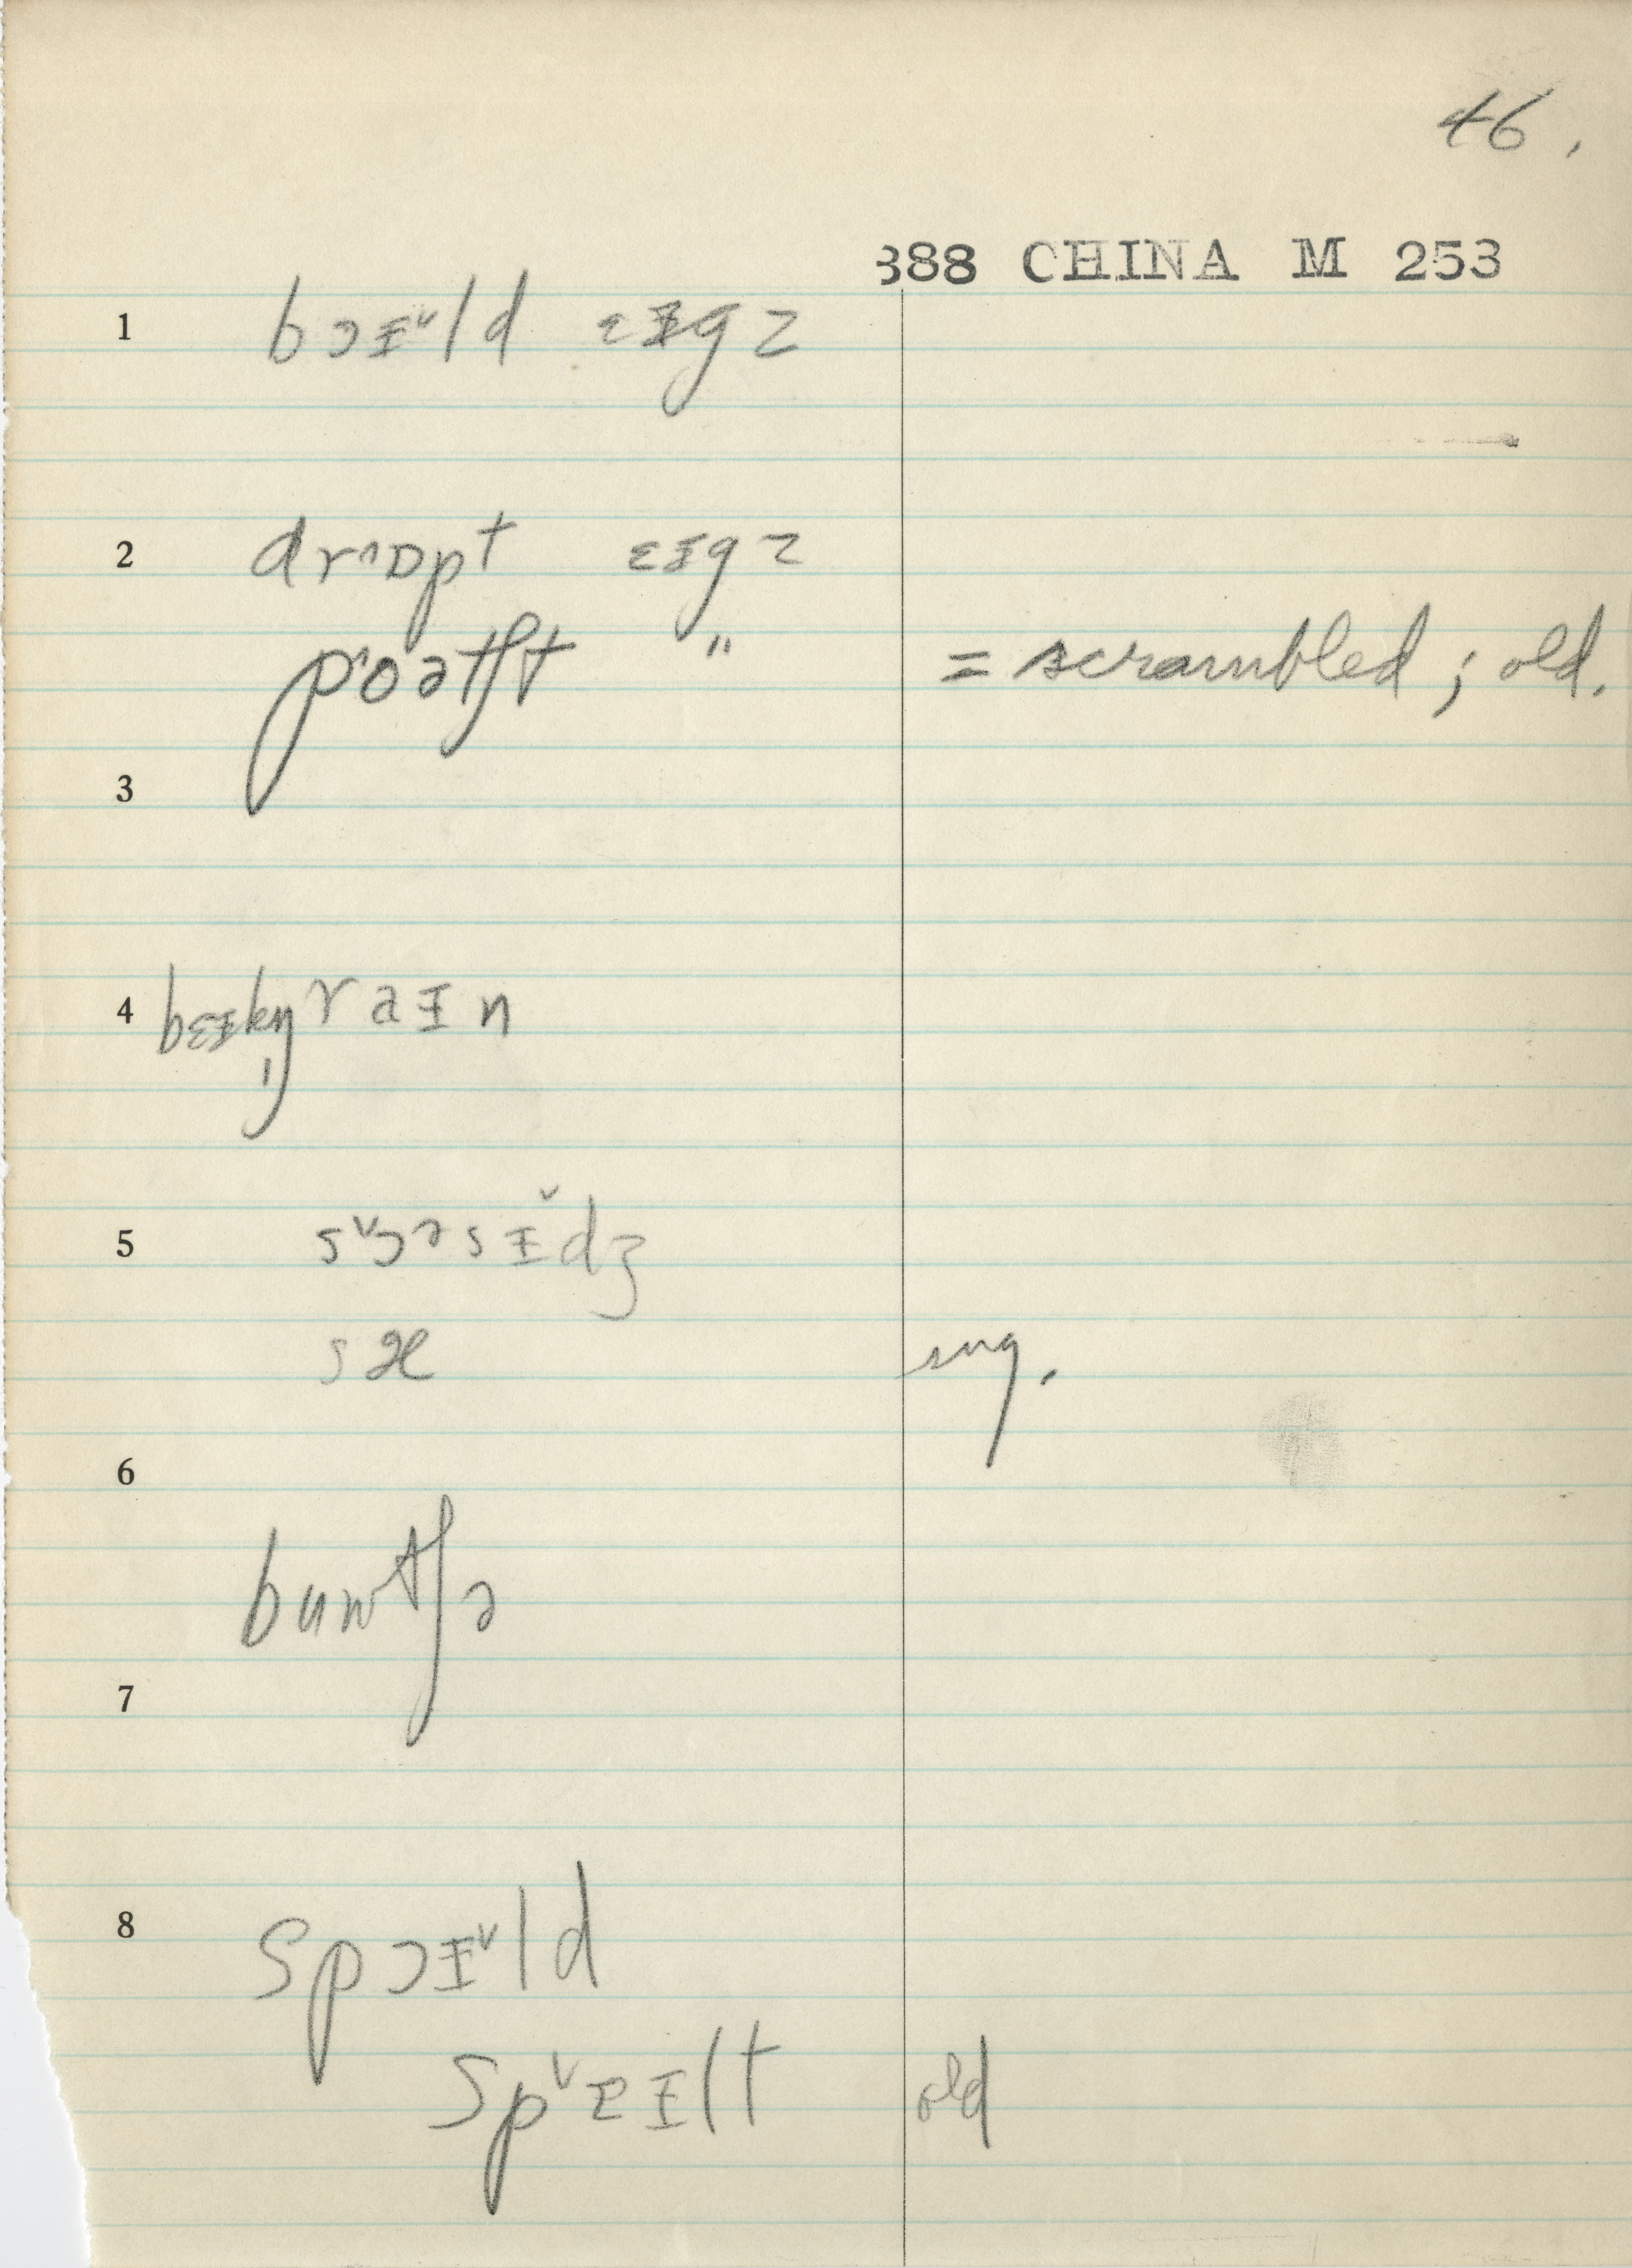 46.
388 CHINA M 253
1 bɔɪ˅ld ɛɪgz
2 drɒpt ɛɪgz
poətʃt " = scrambled ; old.
3
4 bɛɪkn̩ raɪn
5 sɔəsɪ̆dʒ
sæ sng.
6
butʃə
7
8 spɔɪ˅ld
sp˅ɛɪlt old